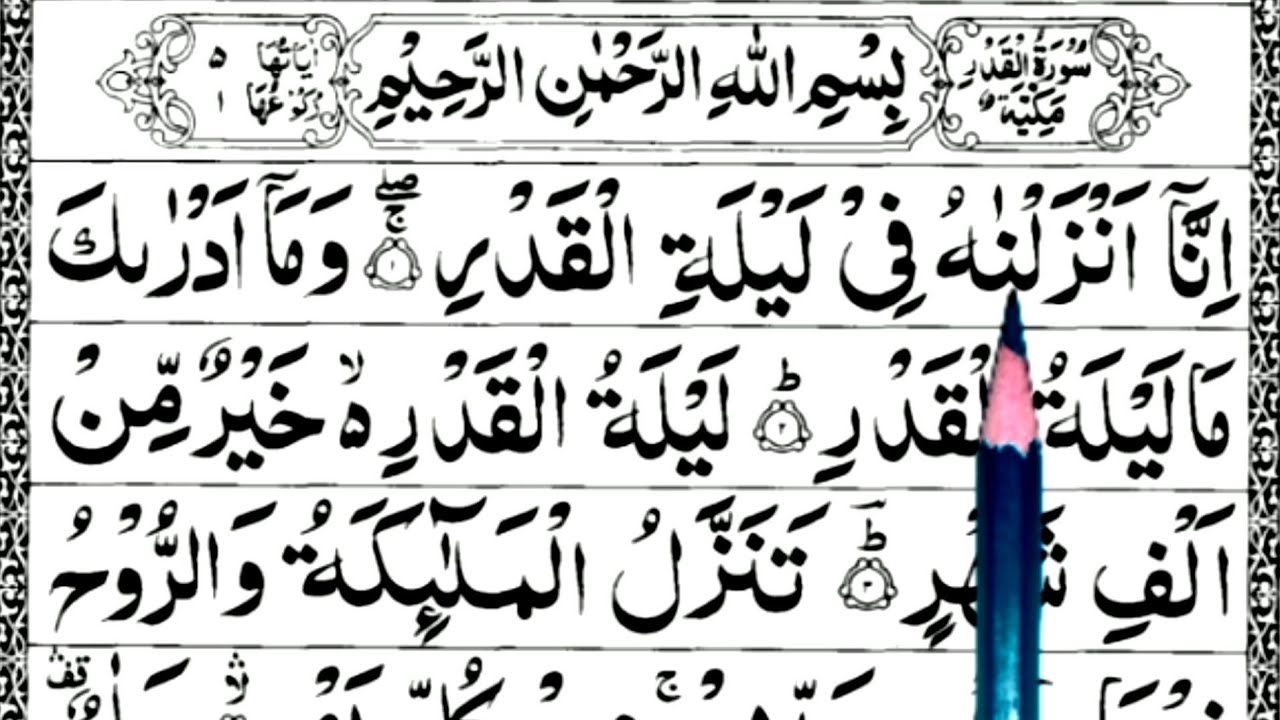 سُوْرَةُ الْقَدْرِ مَكِّيَّةٌ
بِسْمِ اللّٰهِ الرَّحْمٰنِ الرَّحِيْمِ
اٰيَاتُهَا ۵
رُكُوْعُهَا ۱
اِنَّاۤ اَنْزَلْنٰهُ فِیْ لَیْلَةِ الْقَدْرِ ۝۱ۚۖ وَمَاۤ اَدْرٰىكَ
مَا لَیْلَةُ الْقَدْرِ ۝۲ؕ لَیْلَةُ الْقَدْرِ ۙ۬ خَیْرٌ مِّنْ
اَلْفِ شَهْرٍ ۝۳ؕؔ تَنَزَّلُ الْمَلٰٓىِٕكَةُ وَالرُّوْحُ